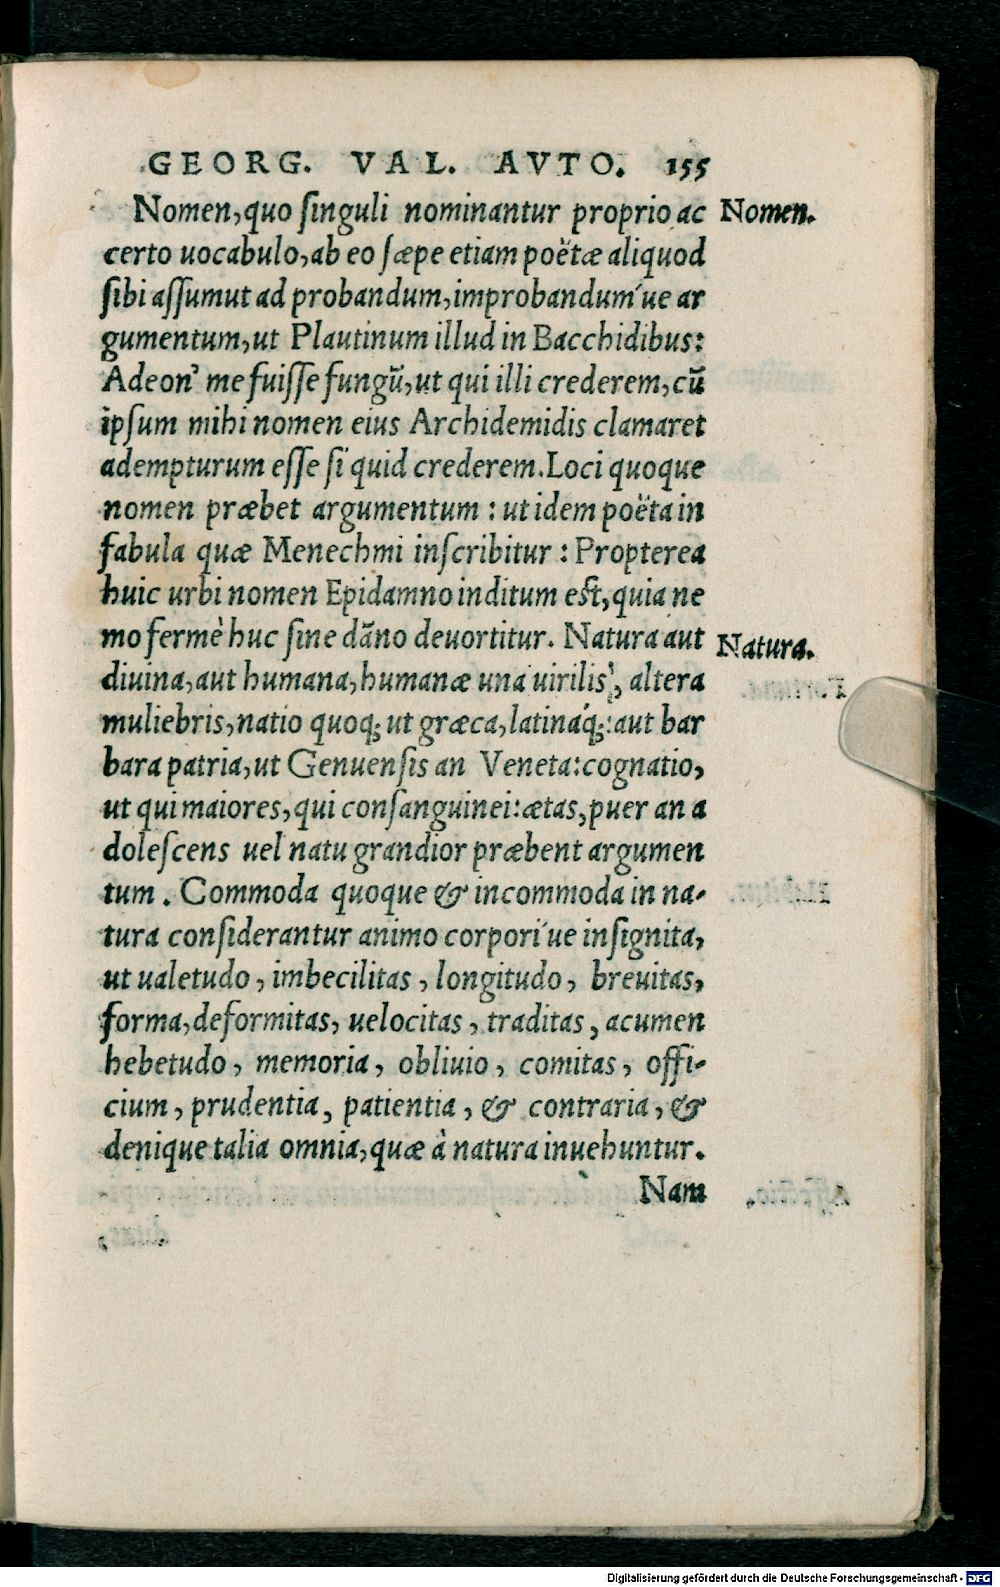 GEORG. VAL. AVTO. 155
Nomen, quo ſinguli nominantur proprio ac Nomen.
certo uocabulo, ab eo ſæpe etiam poëtæ aliquod
ſibi aſſumut ad probandum, improbandum´ue ar
gumentum, ut Plautinum illud in Bacchidibus:
Adeon’ me fuiſſe fungũ, ut qui illi crederem, cũ
ipſum mihi nomen eius Archidemidis clamaret
adempturum eſſe ſi quid crederem. Loci quoque
nomen præbet argumentum : ut idem poëta in
fabula quæ Menechmi inſcribitur : Propterea
huic urbi nomen Epidamno inditum eſt, quia ne
mo fermè huc ſine dãno deuortitur. Natura aut Natura.
diuina, aut humana, humanæ una uirilis, altera
muliebris, natio quoq; ut græca, latináq;: aut bar
bara patria, ut Genuenſis an Veneta: cognatio,
ut qui maiores, qui conſanguinei: ætas, puer an a
doleſcens uel natu grandior præbent argumen
tum. Commoda quoque & incommoda in na-
tura conſiderantur animo corpori´ue inſignita,
ut ualetudo, imbecilitas, longitudo, breuitas,
forma, deformitas, uelocitas, traditas, acumen
hebetudo, memoria, obliuio, comitas, offi-
cium, prudentia, patientia, & contraria, &
denique talia omnia, quæ à natura inuehuntur.
Nam
Digitalisierung gefördert durch die Deutsche Forschungsgemeinschaft - DFG